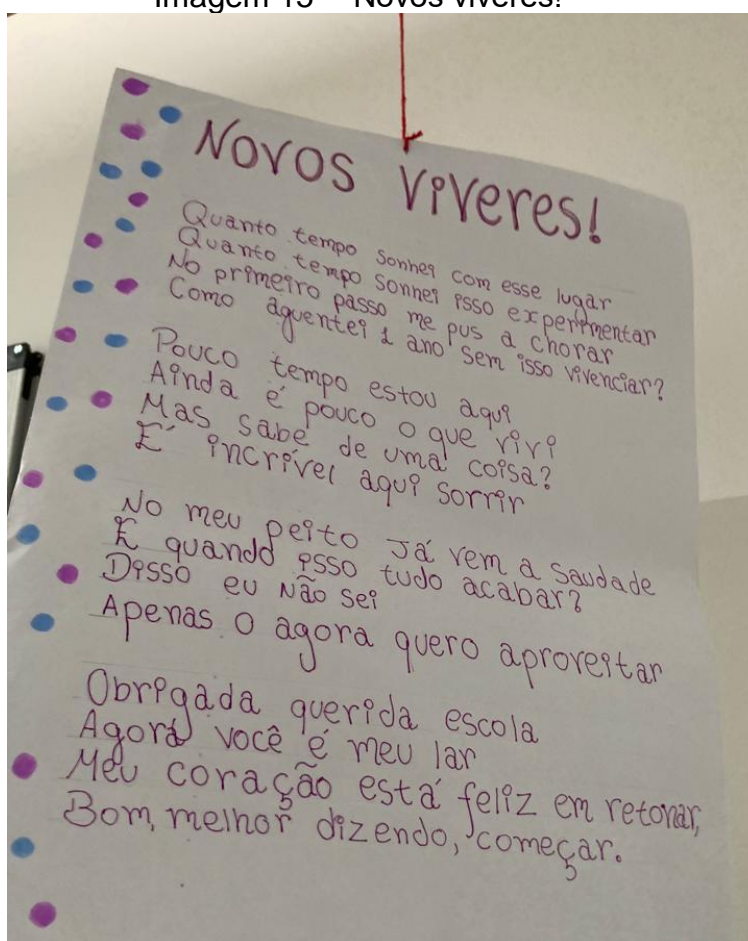 Imagem 15 – Novos viveres!
NOVOS VIVERES!
Quanto tempo sonhei com esse lugar
Quanto tempo sonhei isso experimentar
No primeiro passo me pus a chorar
Como aguentei 1 ano sem isso vivenciar?
Pouco tempo estou aqui
Ainda é pouco o que vivi
Mas sabe de uma coisa?
É incrível aqui sorrir
No meu peito já vem a saudade
E quando isso tudo acabar?
Disso eu não sei
Apenas o agora quero aproveitar
Obrigada querida escola
Agora você é meu lar
Meu coração está feliz em retonar,
Bom, melhor dizendo, começar.